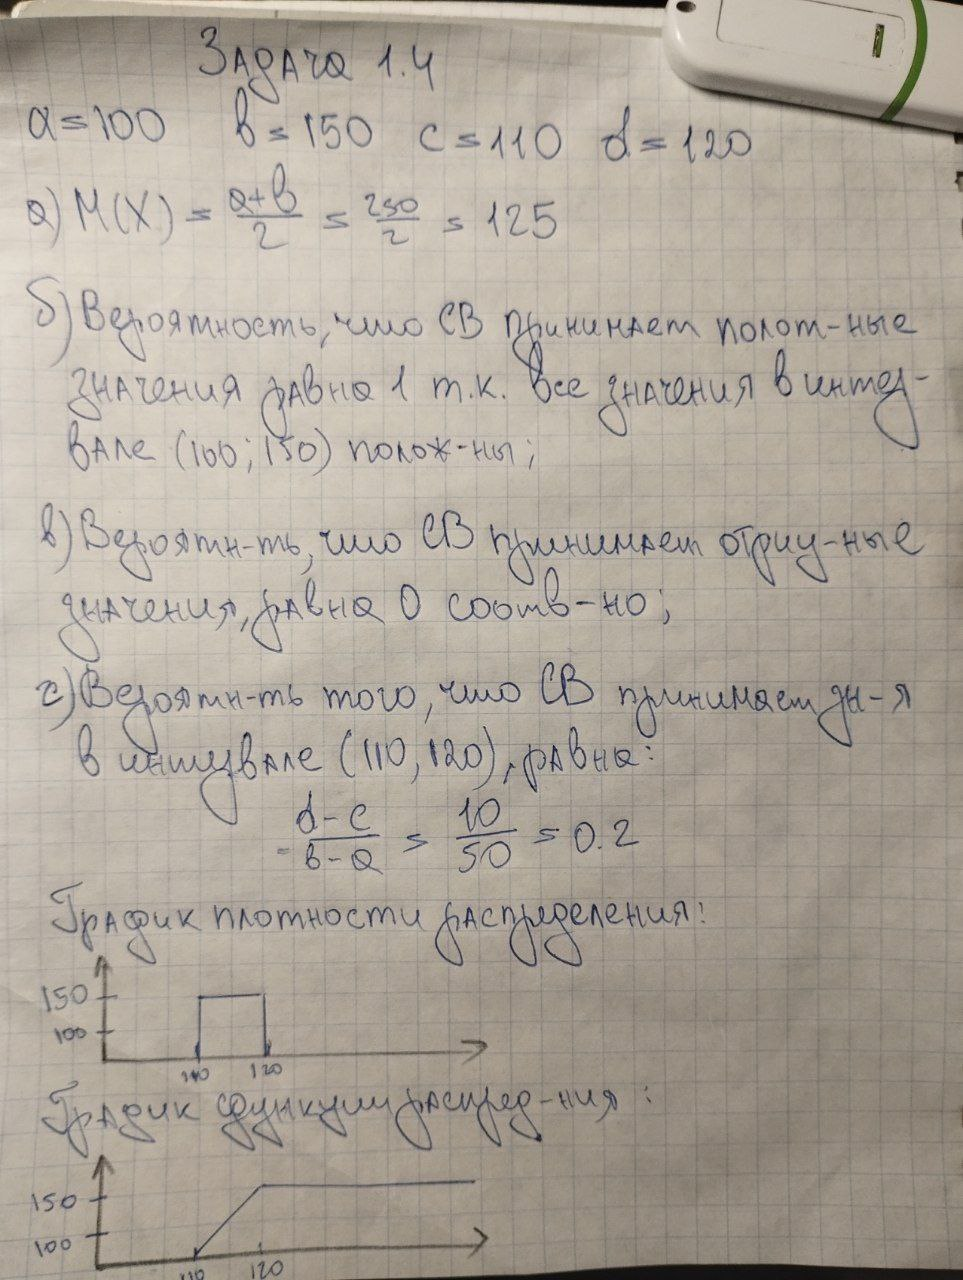 Задача 1.4
a = 100 b = 150 c = 110 d = 120
а) M(X) = a+b/2 = 250/2 = 125
б) Вероятность, что СВ принимает полот-ные
значения равна 1 т.к. все значения в интер-
вале (100; 150) полож-ны;
в) Вероятн-ть, что СВ принимает отриц-ные
значения, равна 0 соотв-но;
г) Вероятн-ть того, что СВ принимает зн-я
в интервале (110, 120), равна:
= d-c/b-a = 10/50 = 0.2
График плотности распределения:
150
100
110 120
График функции распред-ния :
150
100
110 120